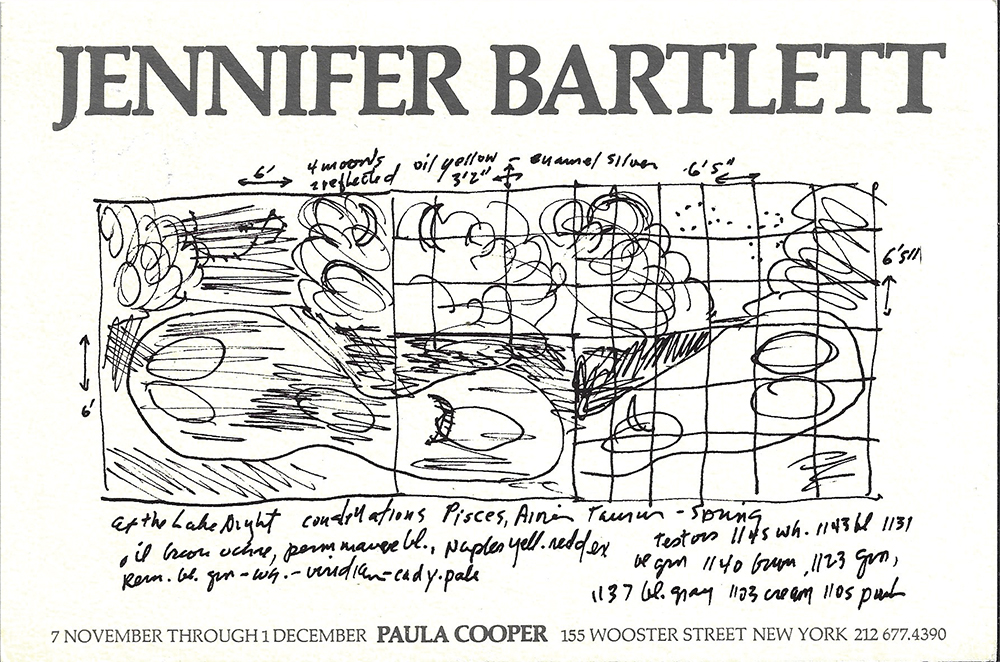 JENNIFER BARTLETT
6' 4 moons oil yellow - enamel silver 6'5"
2 reflected 3'2"
6'5"
6'
at the Lake Night constellations Pisces, Taurus - Spring
oil brown ochre, perm mauve bl., Naples yell. redd testors 1145 wh. 1143 bl 1131
Rem. bl. grn - wh. - veridian - cad y. pale bl grn 1140 brown, 1123 grn,
1137 bl. gray 1103 cream 1105
7 NOVEMBER THROUGH 1 DECEMBER PAULA COOPER 155 WOOSTER STREET NEW YORK 212 677.4390